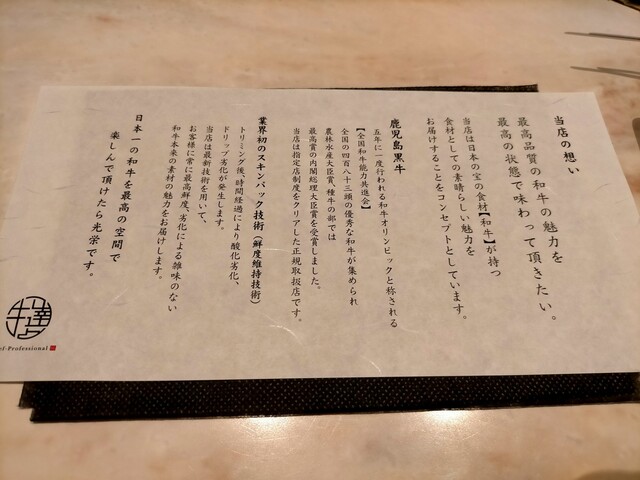 当店の想い
最高品質の和牛の魅力を
最高の状態で味わって頂きたい。
当店は日本の宝の食材【和牛】が持つ
食材としての素晴らしい魅力を
お届けすることをコンセプトとしています。
鹿児島黒牛
五年に一度行われる和牛オリンピックと称される
【全国和牛能力共進会】
全国の四百八十三頭の優秀な和牛が集められ
農林水産大臣賞、種牛の部では
最高賞の内閣総理大臣賞を受賞しました。
当店は指定店制度をクリアした正規取扱店です。
業界初のスキンパック技術（鮮度維持技術）
トリミング後、時間経過により酸化劣化、
ドリップ劣化が発生します。
当店は最新技術を用いて、
お客様に常に最高鮮度、劣化による雑味のない
和牛本来の素材の魅力をお届けします。
日本一の和牛を最高の空間で
楽しんで頂けたら光栄です。
牛達
ef-Professional